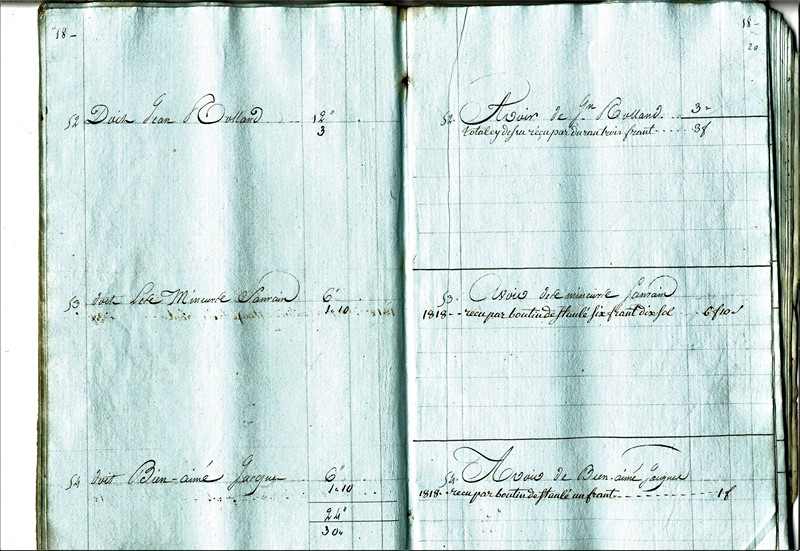 18 -
52 Doit Jean Rolland 12"
3
53 doit Mineure Sanrain 6"
1-10
54 doit Bien-aimé Jacques 6"
1-10
24"
30
18 -
20
52 Avoir de Jn Rolland 3"
reçu par duran trois frant 3f
53 Avoir mineure Sanrain
1818 - reçu par boutin de Staulé six frant dix sol 6f10s
54 Avoir de Bien-aimé Jacques
1818 - reçu par boutin de Staulé un frant 1f